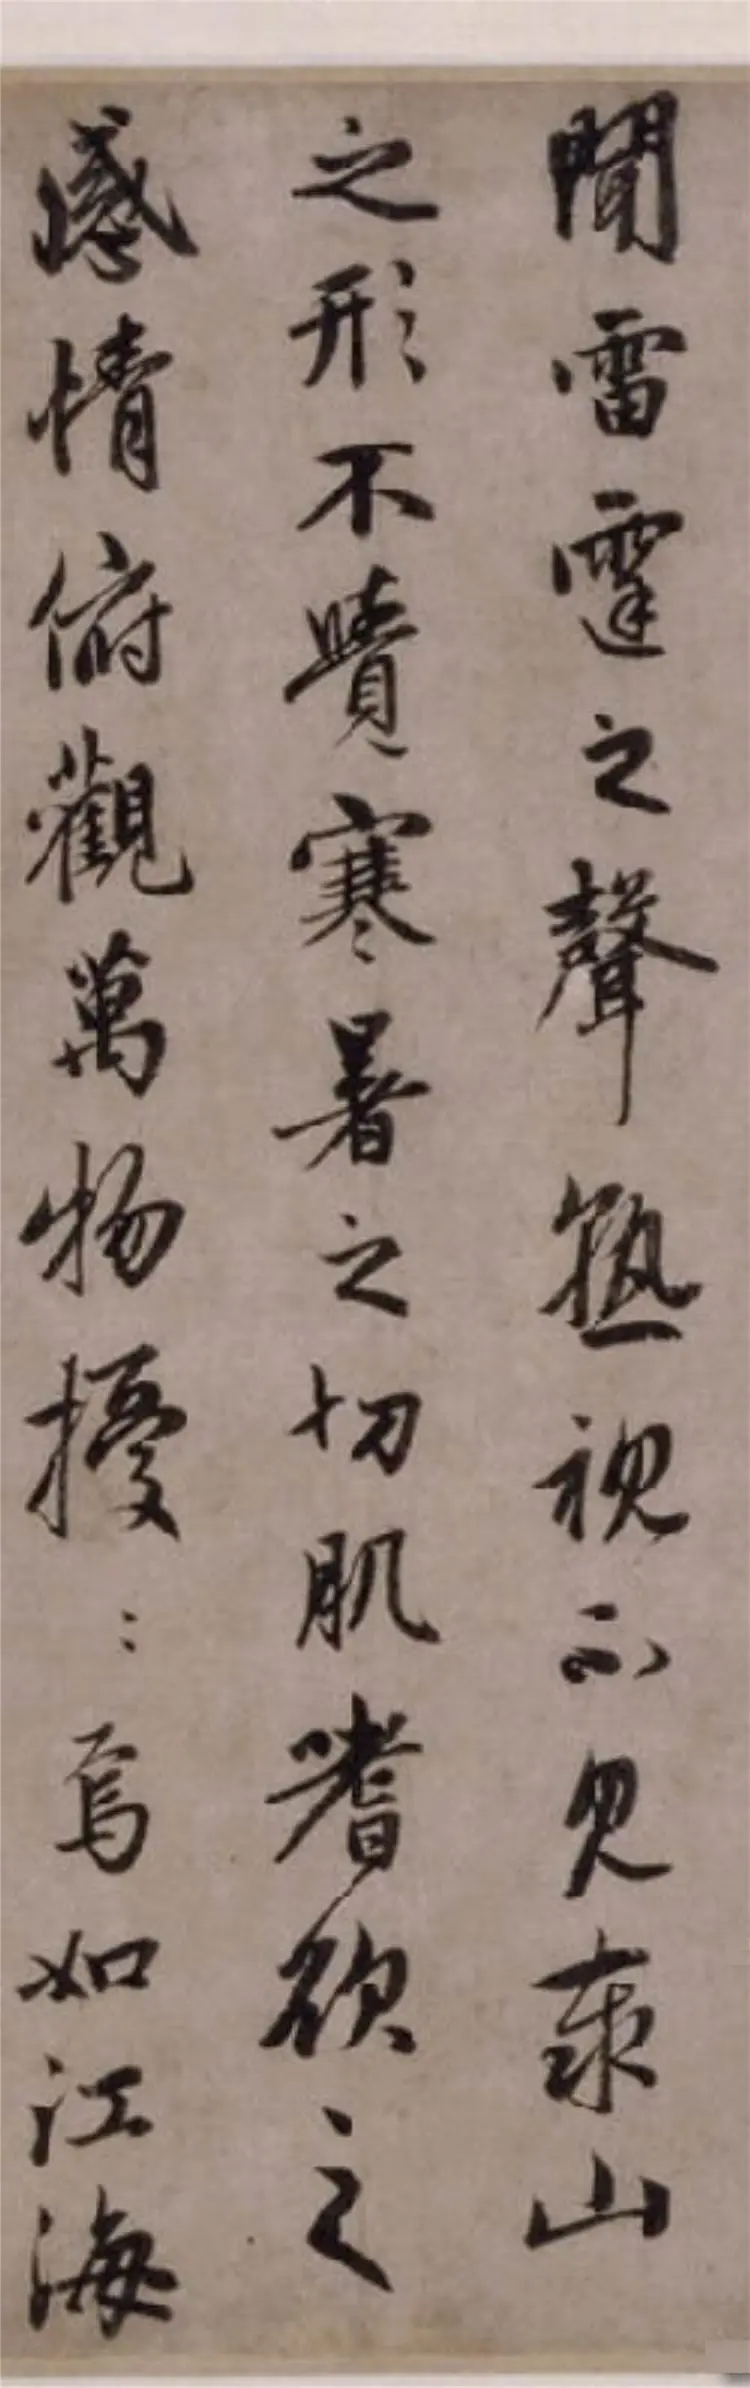 聞雷霆之聲熟視不見泰山
之形不覺寒暑之切肌嗜欲之
感情俯觀萬物擾〻焉如江海